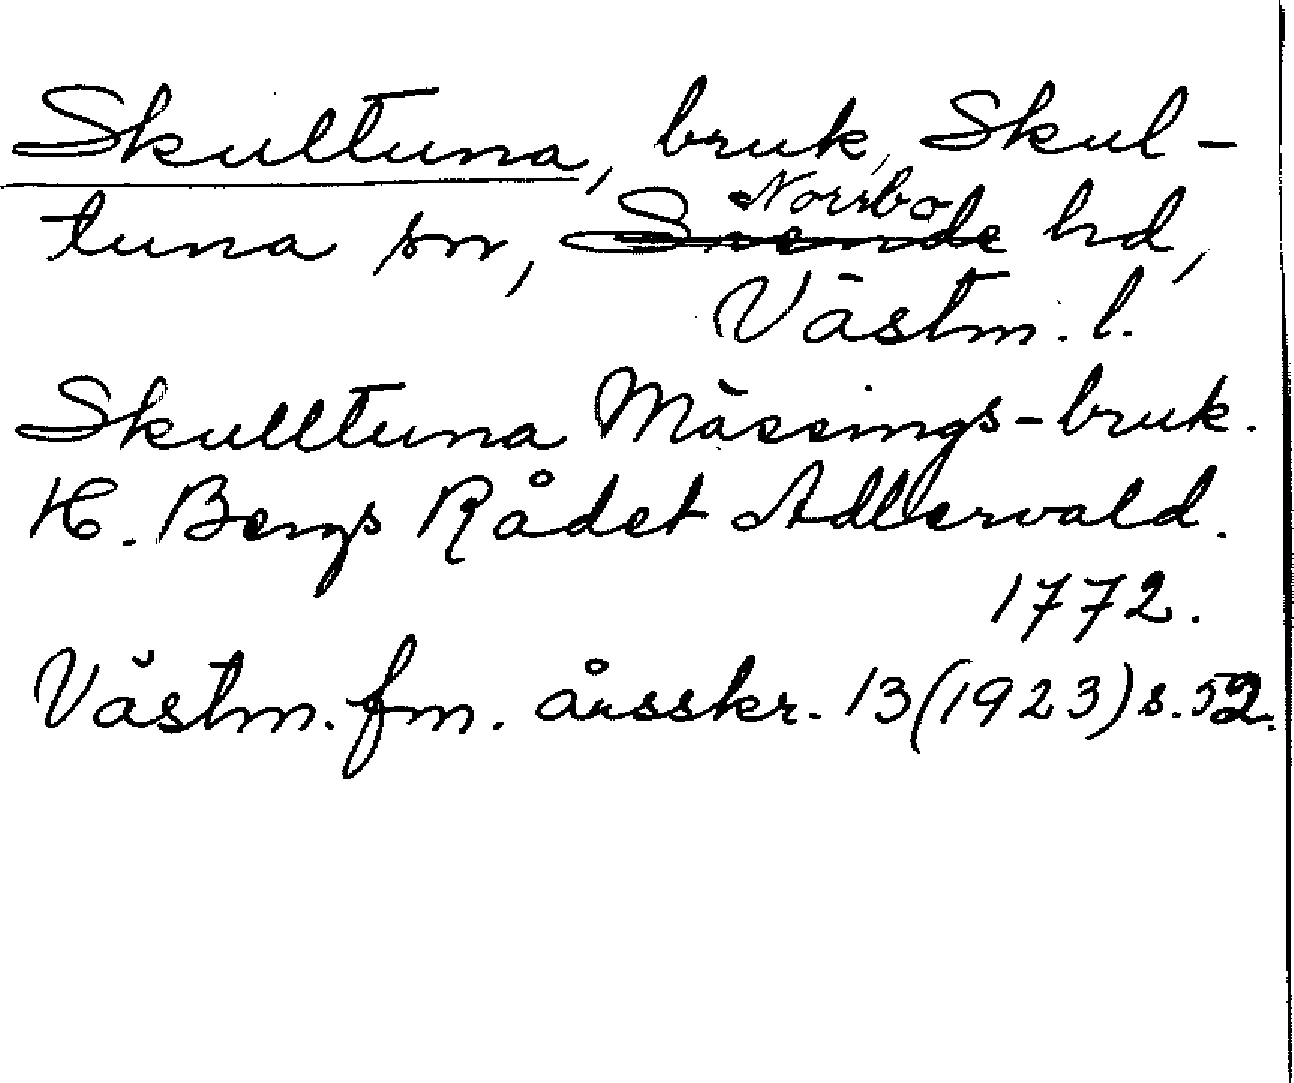 Skultuna, bruk, Skul-
tuna sn, Norrbo hd,
Västm. l.
Skulltuna Mässings-bruk.
H. Bergs Rådet Adlerwald.
1772.
Västm. fm. årsskr. 13 (1923) s. 52.